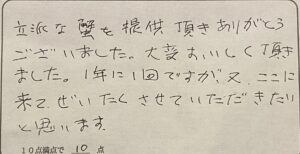 立派な蟹を提供頂きありがとう
ございました。大変おいしく頂き
ました。1年に1回ですが、又、ここに
来て、ぜいたくさせていただきたい
と思います。
10点満点で 10 点